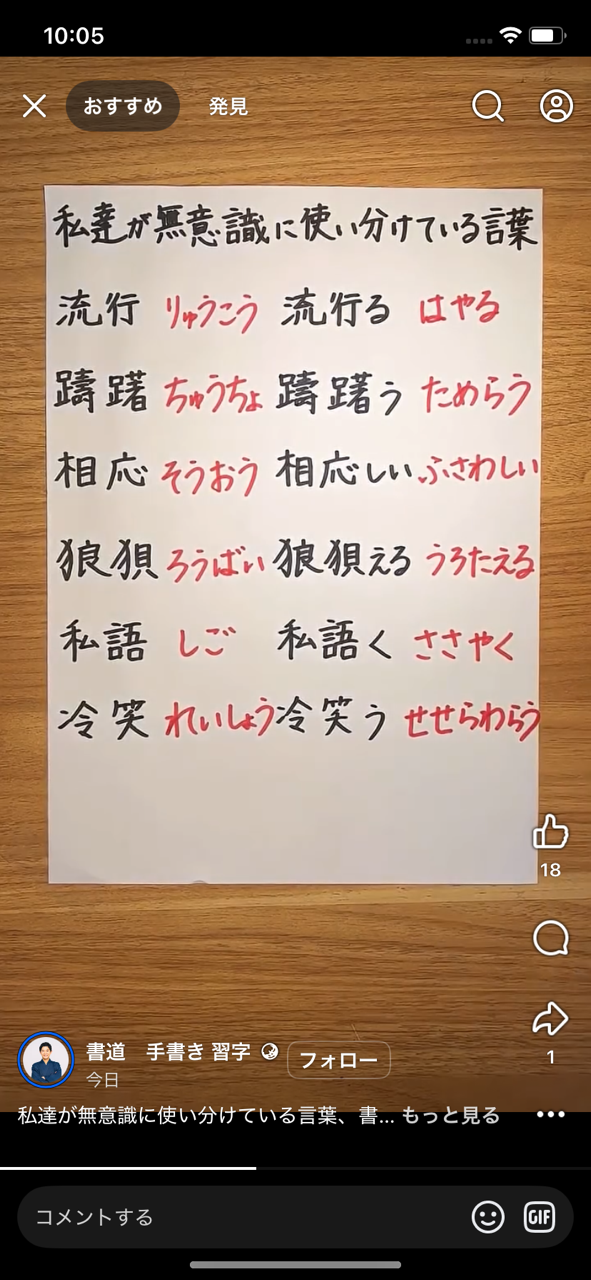 10:05
おすすめ 発見
私達が無意識に使い分けている言葉
流行 りゅうこう 流行る はやる
躊躇 ちゅうちょ 躊躇う ためらう
相応 そうおう 相応しい ふさわしい
狼狽 ろうばい 狼狽える うろたえる
私語 しご 私語く ささやく
冷笑 れいしょう 冷笑う せせらわらう
18
1
書道 手書き 習字 フォロー
今日
私達が無意識に使い分けている言葉、書... もっと見る
コメントする GIF